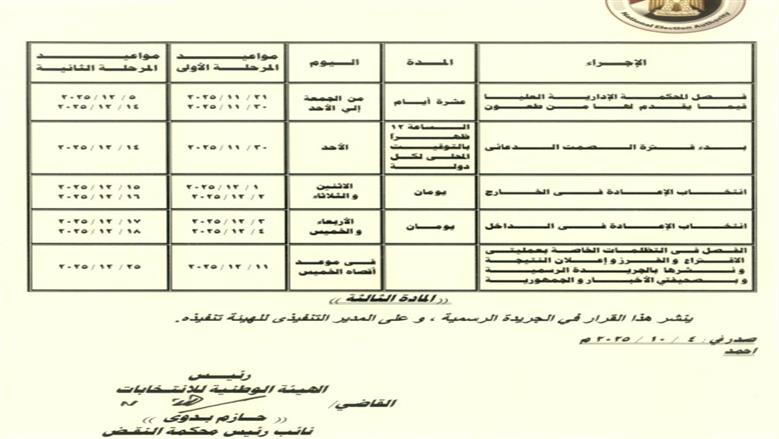 National Election Authority
الإجراء المدة اليوم مواعيد المرحلة الأولى مواعيد المرحلة الثانية
فصل المحكمة الإدارية العليا فيما يقدم لها من طعون عشرة أيام من الجمعة إلي الأحد ٢١ / ١١ / ٢٠٢٥ ٣٠ / ١١ / ٢٠٢٥ ٥ / ١٢ / ٢٠٢٥ ١٤ / ١٢ / ٢٠٢٥
بدء فترة الصمت الدعائى الساعة ١٢ ظهراً بالتوقيت المحلى لكل دولة الأحد ٣٠ / ١١ / ٢٠٢٥ ١٤ / ١٢ / ٢٠٢٥
انتخاب الإعادة فى الخارج يومان الاثنين و الثلاثاء ١ / ١٢ / ٢٠٢٥ ٢ / ١٢ / ٢٠٢٥ ١٥ / ١٢ / ٢٠٢٥ ١٦ / ١٢ / ٢٠٢٥
انتخاب الإعادة فى الداخل يومان الأربعاء و الخميس ٣ / ١٢ / ٢٠٢٥ ٤ / ١٢ / ٢٠٢٥ ١٧ / ١٢ / ٢٠٢٥ ١٨ / ١٢ / ٢٠٢٥
الفصل فى التظلمات الخاصة بعمليتى الاقتراع و الفرز و إعلان النتيجة و نشرها بالجريدة الرسمية و بصحيفتي الأخبار و الجمهورية فى موعد أقصاه الخميس ١١ / ١٢ / ٢٠٢٥ ٢٥ / ١٢ / ٢٠٢٥
(( المادة الثالثة ))
ينشر هذا القرار في الجريدة الرسمية ، و على المدير التنفيذى للهيئة تنفيذه.
صدر في : ٤ / ١٠ / ٢٠٢٥ م
احمد
رئيس
الهيئة الوطنية للانتخابات
القاضي/
(( حازم بدوى ))
نائب رئيس محكمة النقض